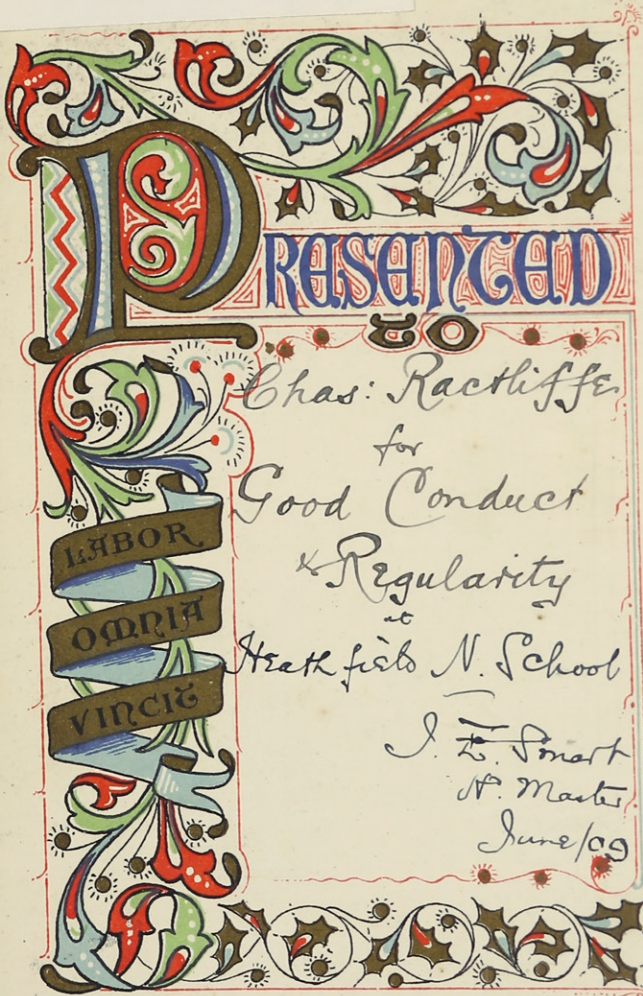 PRESENTED
TO
Chas: Ractliffe
for
Good Conduct
& Regularity
at
Heathfield N. School
J. E. Smart
H. Master
June/09
LABOR
OMNIA
VINCIT